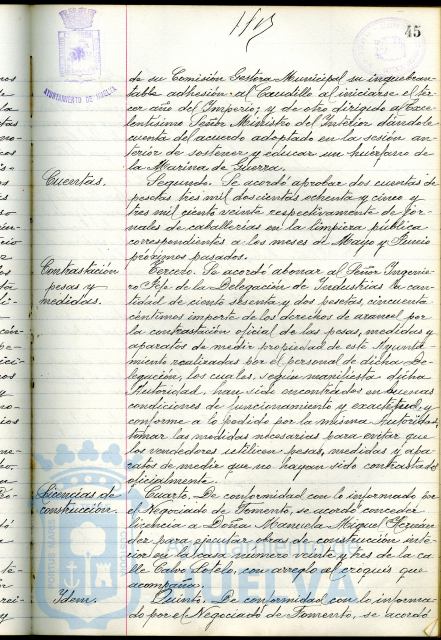 45
AYUNTAMIENTO DE HUELVA
de su Comisión Gestora Municipal su inquebran-
table adhesión al Caudillo al iniciarse el ter-
cer año del Imperio; y de otro dirigido al Exce-
lentísimo Señor Ministro del Interior dándole
cuenta del acuerdo adoptado en la sesión an-
terior de sostener y educar un huérfano de
la Marina de Guerra.
Cuentas.
Segundo. Se acordó aprobar dos cuentas de
pesetas tres mil doscientas ochenta y cinco y
tres mil ciento veinte respectivamente de jor-
nales de caballerías en la limpieza pública
correspondientes a los meses de Mayo y Junio
próximos pasados.
Contrastación
pesas y
medidas.
Tercero. Se acordó abonar al Señor Ingenie-
ro Jefe de la Delegación de Industrias la can-
tidad de ciento sesenta y dos pesetas, cincuenta
céntimos importe de los derechos de arancel por
la contrastación oficial de las pesas, medidas y
aparatos de medir propiedad de este Ayunta-
miento realizadas por el personal de dicha De-
legación, los cuales, según manifiesta dicha
Autoridad, han sido encontrados en buenas
condiciones de funcionamiento y exactitud, y
conforme a lo pedido por la misma Autoridad,
tomar las medidas necesarias para evitar que
los vendedores utilicen pesas, medidas y apa-
ratos de medir que no hayan sido contrastados
oficialmente.
Licencias de
construcción.
Cuarto. De conformidad con lo informado por
el Negociado de Fomento, se acordó conceder
licencia a Doña Manuela Miguel Fernán-
dez para ejecutar obras de construcción inte-
rior en la casa número veinte y tres de la ca-
lle Calvo Sotelo, con arreglo al croquis que
acompaña.
Idem.
Quinto. De conformidad con lo informa-
do por el Negociado de Fomento, se acordó
HUELVA